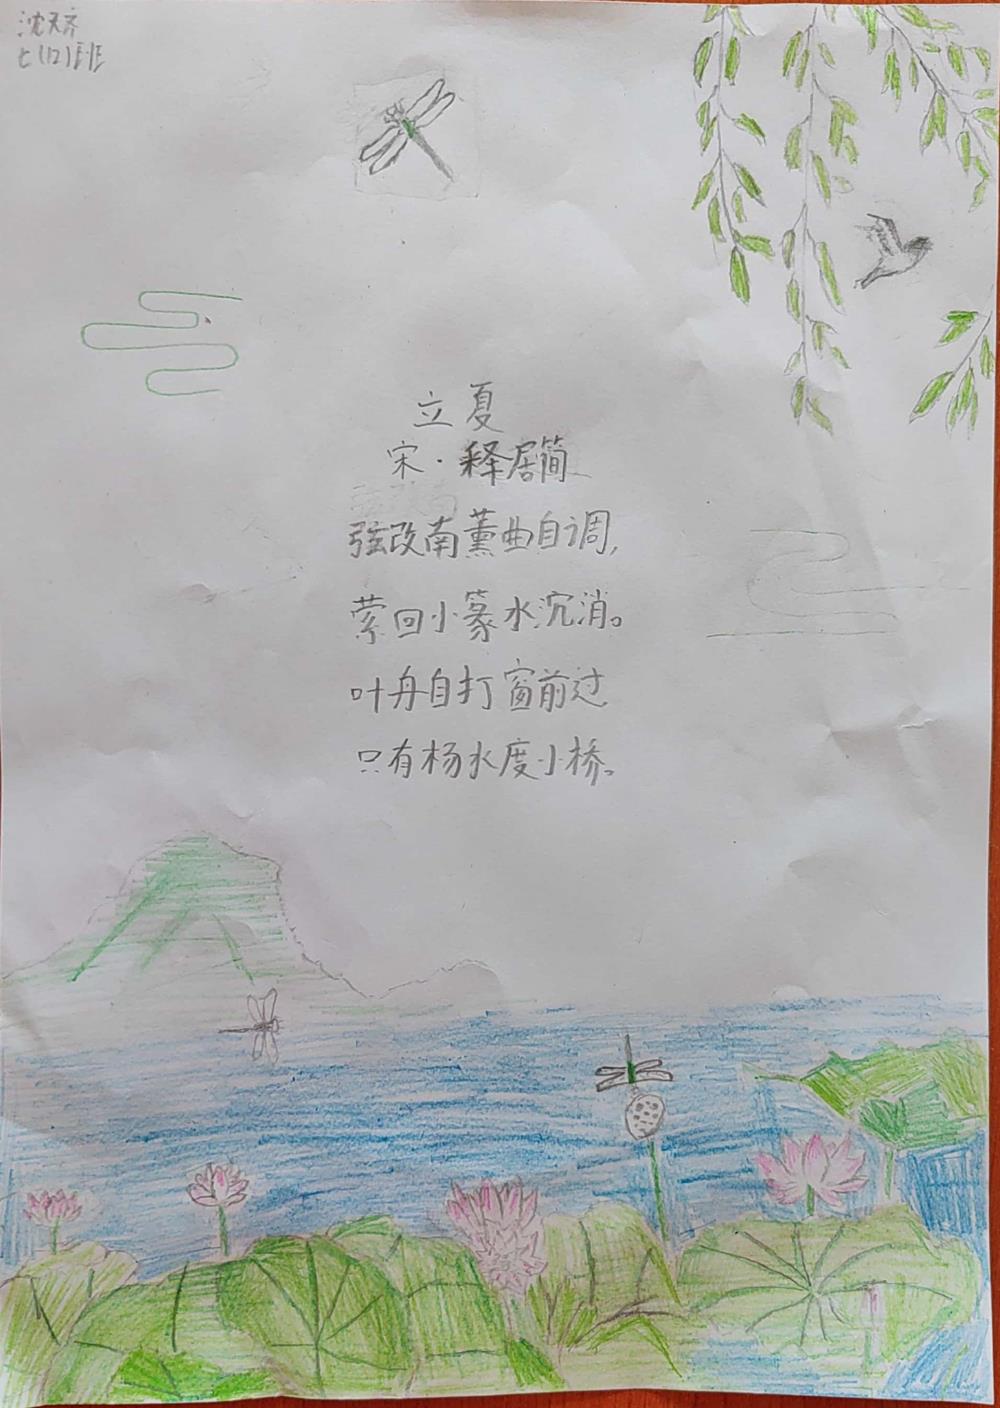 沈天齐
七(12)班
立夏
宋·释居简
弦改南薰曲自调,
萦回小篆水沉消。
叶舟自打窗前过
只有杨水度小桥。